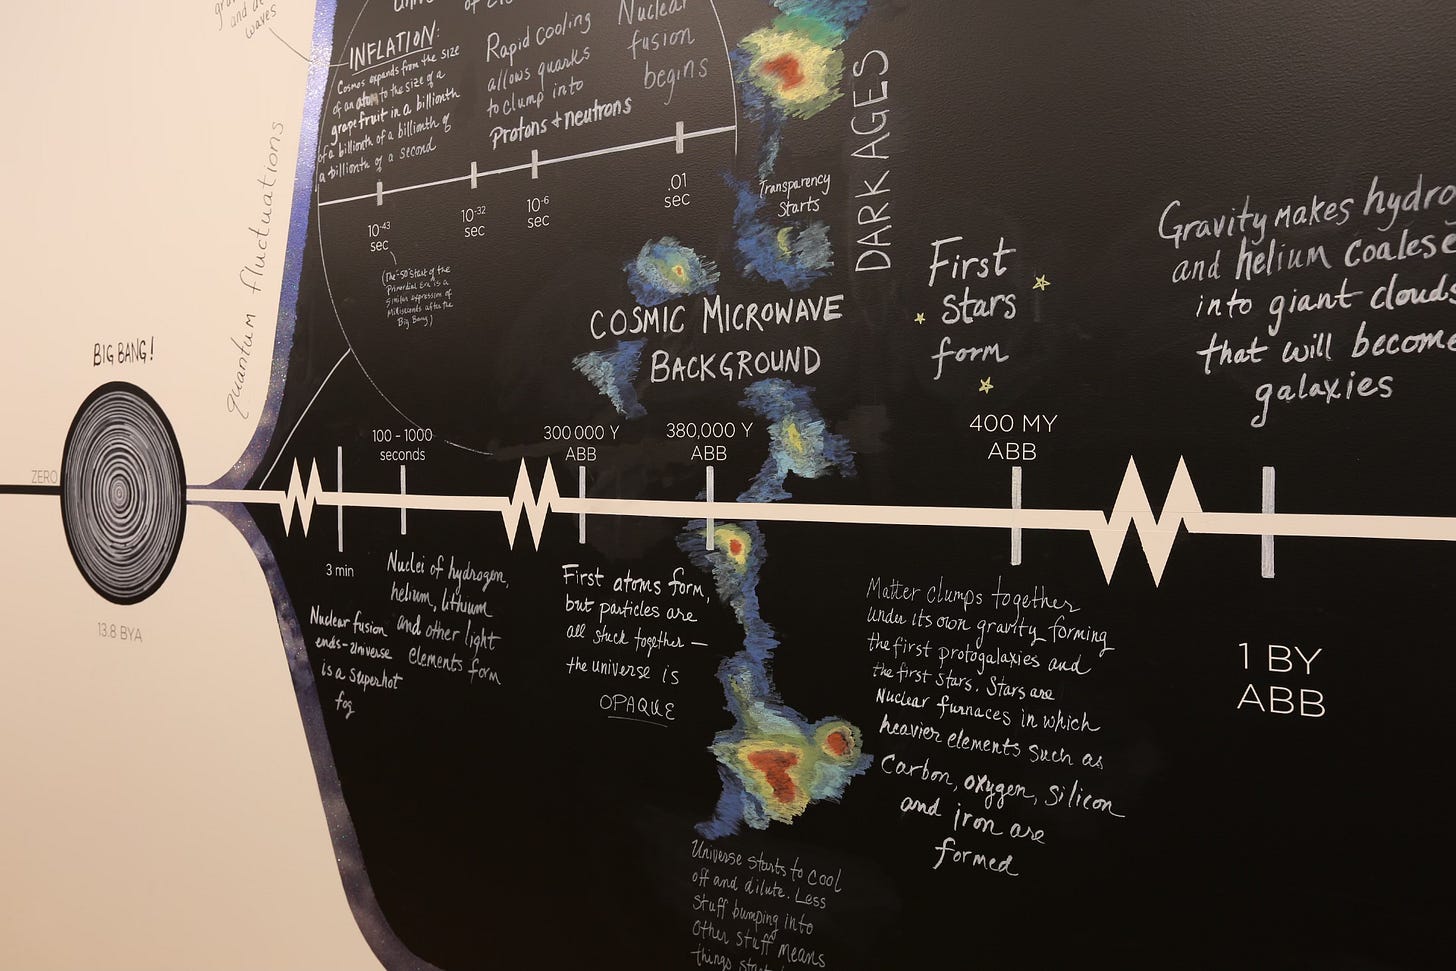 and
waves
INFLATION:
Cosmos expands from the size
of an atom to the size of a
grapefruit in a billionth
of a billionth of a billionth of
a billionth of a second
Rapid cooling
allows quarks
to clump into
Protons + neutrons
Nuclear
fusion
begins
10-43
sec
10-32
sec
10-6
sec
.01
sec
(The "50" start of the
Primordial Era is a
similar expression of
milliseconds after the
Big Bang)
quantum fluctuations
BIG BANG!
ZERO
13.8 BYA
Transparency
Starts
DARK AGES
COSMIC MICROWAVE
BACKGROUND
First
stars
form
Gravity makes hydro
and helium coalese
into giant clouds
that will become
galaxies
100 - 1000
seconds
300 000 Y
ABB
380,000 Y
ABB
400 MY
ABB
3 min
Nuclear fusion
ends - universe
is a superhot
fog
Nuclei of hydrogen,
helium, lithium
and other light
elements form
First atoms form,
but particles are
all stuck together —
the universe is
OPAQUE
Matter clumps together
under its own gravity forming
the first protogalaxies and
the first stars. Stars are
Nuclear furnaces in which
heavier elements such as
Carbon, oxygen, silicon
and iron are
formed
1 BY
ABB
Universe starts to cool
off and dilute. Less
stuff bumping into
other stuff means
things